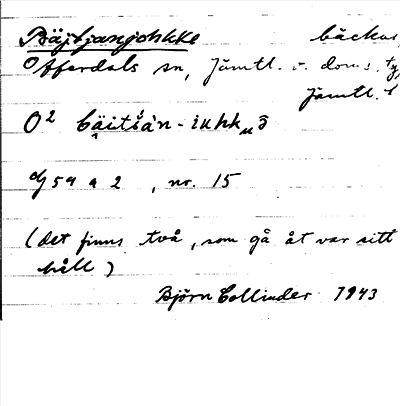 Bäjtjangjohkke bäckar,
Offerdals sn, Jämtl. v. doms. tg,
Jämtl. l
O² bäitján-iuhkᵤ
G 59 a 2, nr. 15
(det finns två, som gå åt var sitt
håll)
Björn Collinder 1943